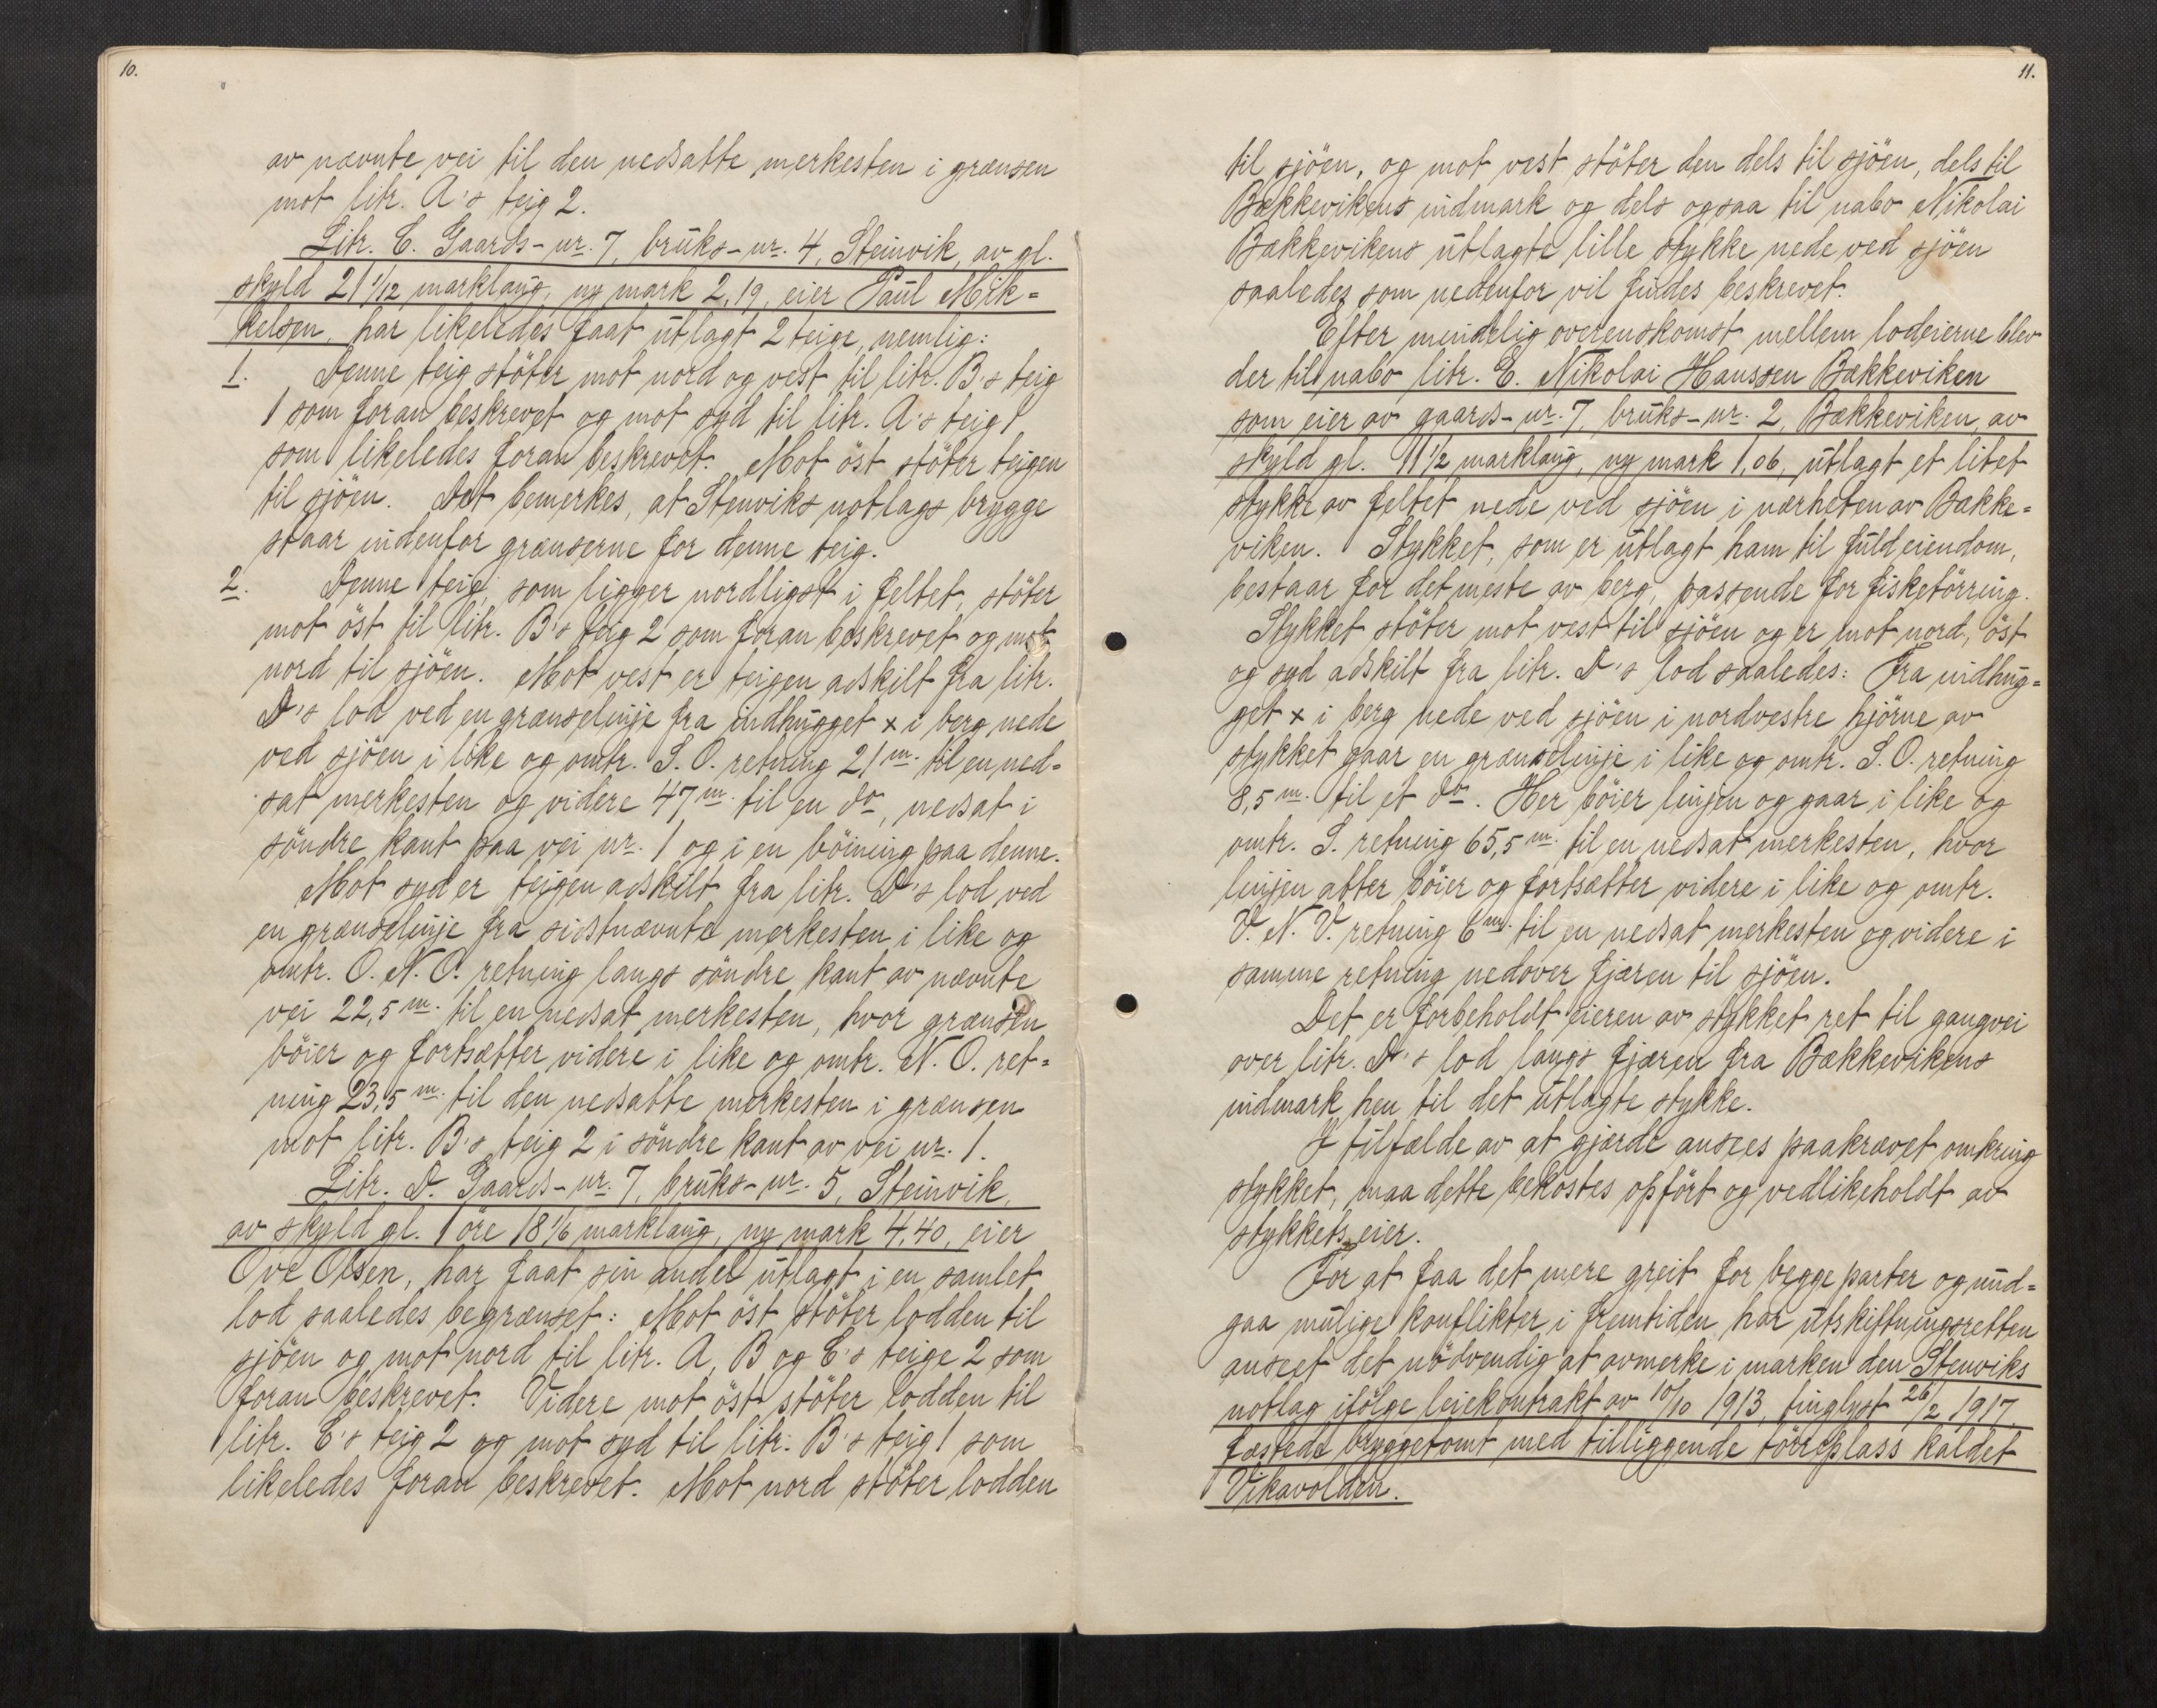 10.
av nævnte vei til den nedsatte merkesten i grænsen
mot litr. A's teig 2.
Litr. C. Gaards-nr. 7, bruks-nr. 4, Steinvik, av gl.
skyld 21 1/12 marklaug, ny mark 2,19, eier Paul Mik=
kelsen, har likeledes faat utlagt 2 teige, nemlig:
1. Denne teig stöter mot nord og vest til litr. B's teig
1 som foran beskrevet og mot syd til litr. A's teig 1
som likeledes foran beskrevet. Mot öst stöter teigen
til sjöen. Det bemerkes, at Stenviks notlags brygge
staar indenfor grænserne for denne teig.
2. Denne teig, som ligger nordligst i feltet, stöter
mot öst til litr. B's teig 2 som foran beskrevet og mot
nord til sjöen. Mot vest er teigen adskilt fra litr.
D's lod ved en grænselinje fra indhugget x i berg nede
ved sjöen i like og omtr. S. O. retning 21 m. til en ned=
sat merkesten og videre 47 m. til en do, nedsat i
söndre kant paa vei nr. 1 og i en böining paa denne.
Mot syd er teigen adskilt fra litr. D's lod ved
en grænselinje fra sidstnævnte merkesten i like og
omtr. O. N. O. retning langs söndre kant av nævnte
vei 22,5 m. til en nedsat merkesten, hvor grænsen
böier og fortsætter videre i like og omtr. N. O. ret=
ning 23,5 m. til den nedsatte merkesten i grænsen
mot litr. B's teig 2 i söndre kant av vei nr. 1.
Litr. D. Gaards-nr. 7, bruks-nr. 5, Steinvik,
av skyld gl. 1 öre 18 1/6 marklaug, ny mark 4,40, eier
Ove Olsen, har faat sin andel utlagt i en samlet
lod saaledes begrænset: Mot öst stöter lodden til
sjöen og mot nord til litr. A, B og C's teige 2 som
foran beskrevet. Videre mot öst stöter lodden til
litr. C's teig 2 og mot syd til litr. B's teig 1 som
likeledes foran beskrevet. Mot nord stöter lodden
11.
til sjöen, og mot vest stöter den dels til sjöen, dels til
Bækkevikens indmark og dels ogsaa til nabo Nikolai
Bækkevikens utlagte lille stykke nede ved sjöen
saaledes som nedenfor vil findes beskrevet.
Efter mindelig overenskomst mellem lodeierne blev
der til nabo litr. E. Nikolai Hanssen Bækkeviken
som eier av gaards-nr. 7, bruks-nr. 2, Bækkeviken, av
skyld gl. 11 1/2 marklaug, ny mark 1,06, utlagt et litet
stykke av feltet nede ved sjöen i nærheten av Bække=
viken. Stykket, som er utlagt ham til fuld eiendom,
bestaar for det meste av berg, passende for fisketörring.
Stykket stöter mot vest til sjöen og er mot nord, öst
og syd adskilt fra litr. D's lod saaledes: Fra indhug=
get x i berg nede ved sjöen i nordvestre hjörne av
stykket gaar en grænselinje i like og omtr. S. O. retning
8,5 m. til et do. Her böier linjen og gaar i like og
omtr. S. retning 65,5 m. til en nedsat merkesten, hvor
linjen atter böier og fortsætter videre i like og omtr.
V. N. V. retning 6 m. til en nedsat merkesten og videre i
samme retning nedover fjæren til sjöen.
Det er forbeholdt eieren av stykket ret til gangvei
over litr. D's lod langs fjæren fra Bækkevikens
indmark hen til det utlagte stykke.
I tilfælde av at gjærde ansees paakrævet omkring
stykket, maa dette bekostes opfört og vedlikeholdt av
stykkets eier.
For at faa det mere greit for begge parter og und=
gaa mulige konflikter i fremtiden har utskiftningsretten
anseet det nödvendig at avmerke i marken den Stenviks
notlag ifölge leiekontrakt av 10/10 1913, tinglyst 26/2 1917.
fæstede bryggetomt med tilliggende törreplass kaldet
Vikavolden.